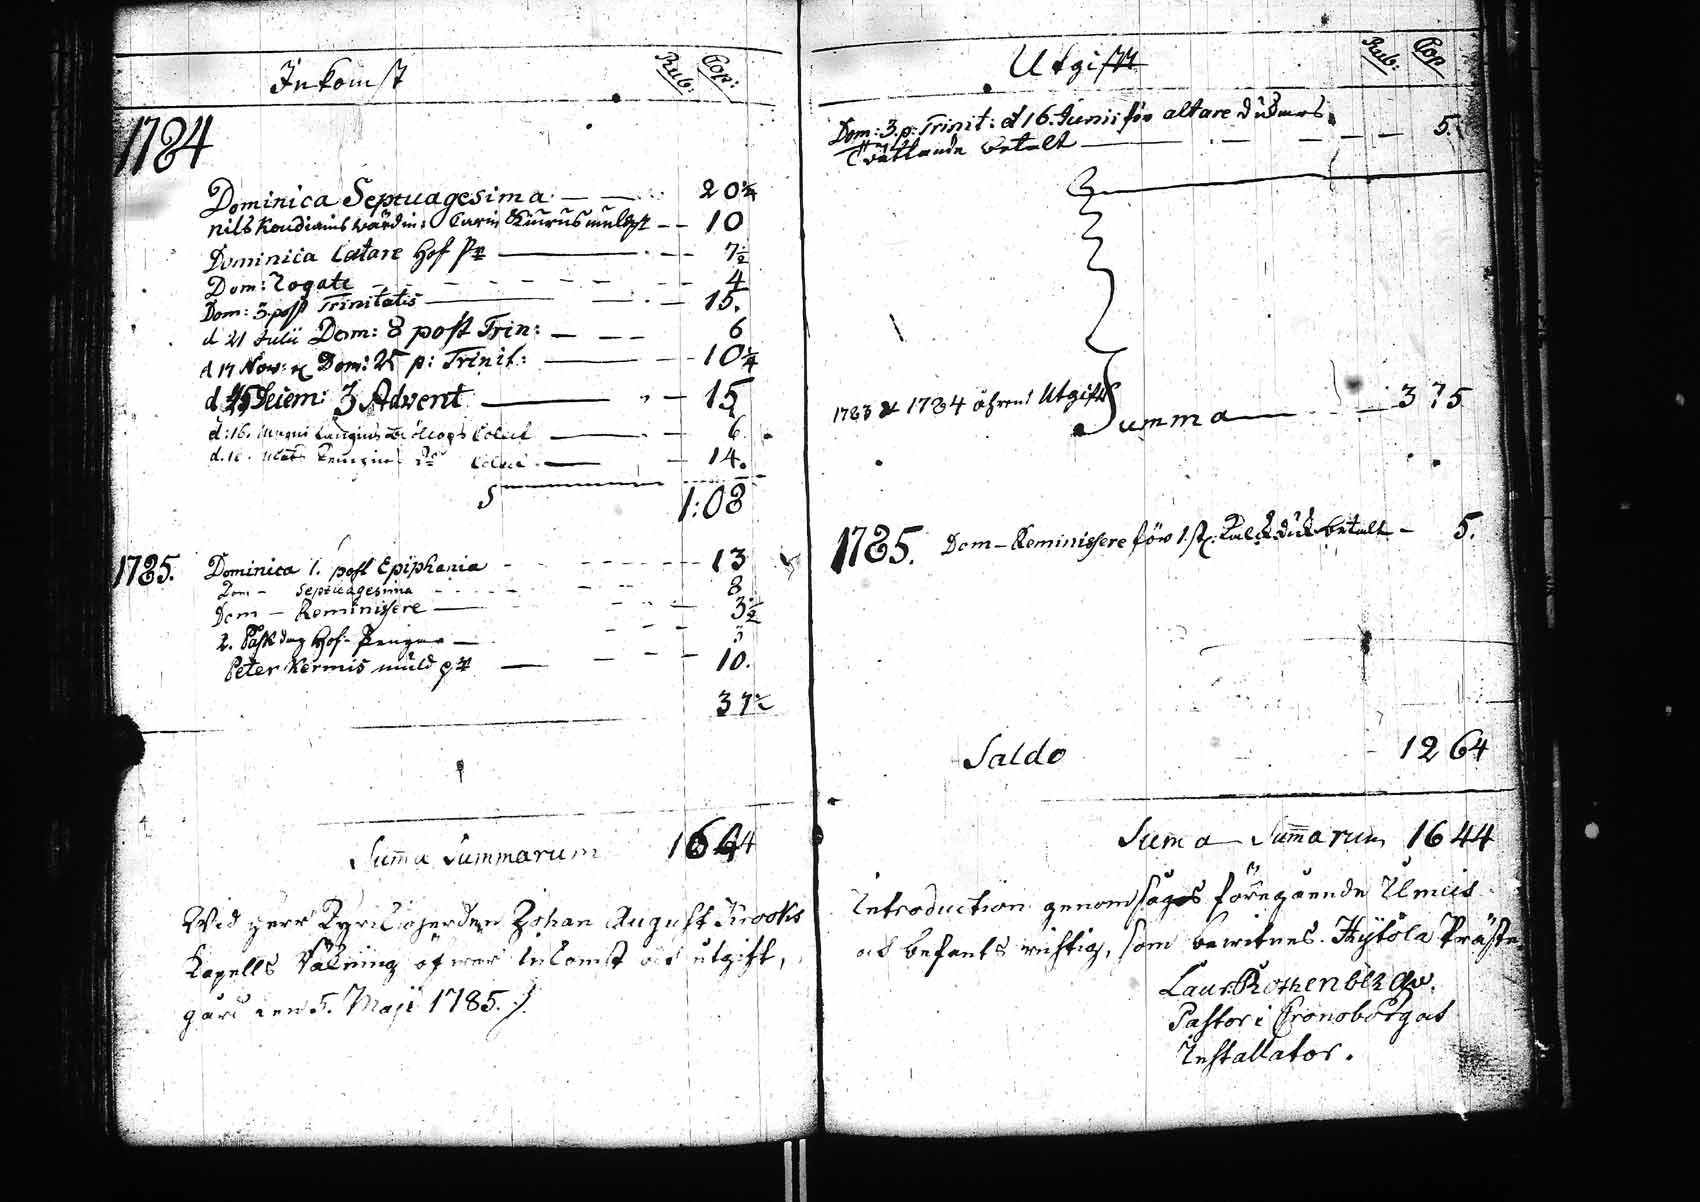 Inkomst Rub: Cop:
1784
Dominica Septuagesima 20 3/4
Nils Koudiains wärdin: Carin Kiurus mull 10
Dominica Lætare Hof 7 1/2
Dom: Rogate 4
Dom: 3. post Trinitatis 15.
d 21 Julii Dom: 8 post Trin: 6
d 17 Nov: Dom: 25 p: Trinit: 10 1/4
d Decem: 3 Advent 15
d: 16. 6
d. 14.
S 1:08
1785. Dominica 1. post Epiphania 13
Dom - Septuagesima 8
Dom - Reminissere 3 1/2
2. Påsk dag Hof-Pengar 3
Peter Kermis muld 10.
37 1/2
Suma Summarum 1644
Wid Herr Kyrckioherden Johan August Krooks
Kapells Räkning öfwer Inkomst och utgift,
gård den 5. Maji 1785.
Utgift Rub: Cop
Dom: 3. p: Trinit: d 16. Junii för altare dukars
twättande betalt 5.
1783 & 1784 åhrens Utgift Summa 3 75
1785. Dom - Reminissere för 1. st. Kalck duk betalt - 5.
Saldo 12 64
Suma Summarum 16 44
Introduction genomsågos föregående Ilmeis
och befants richtig, som bewitnes. Hytola Präste
Laur: Rothenbeck
Pastor i Cronoborg at
Installator.